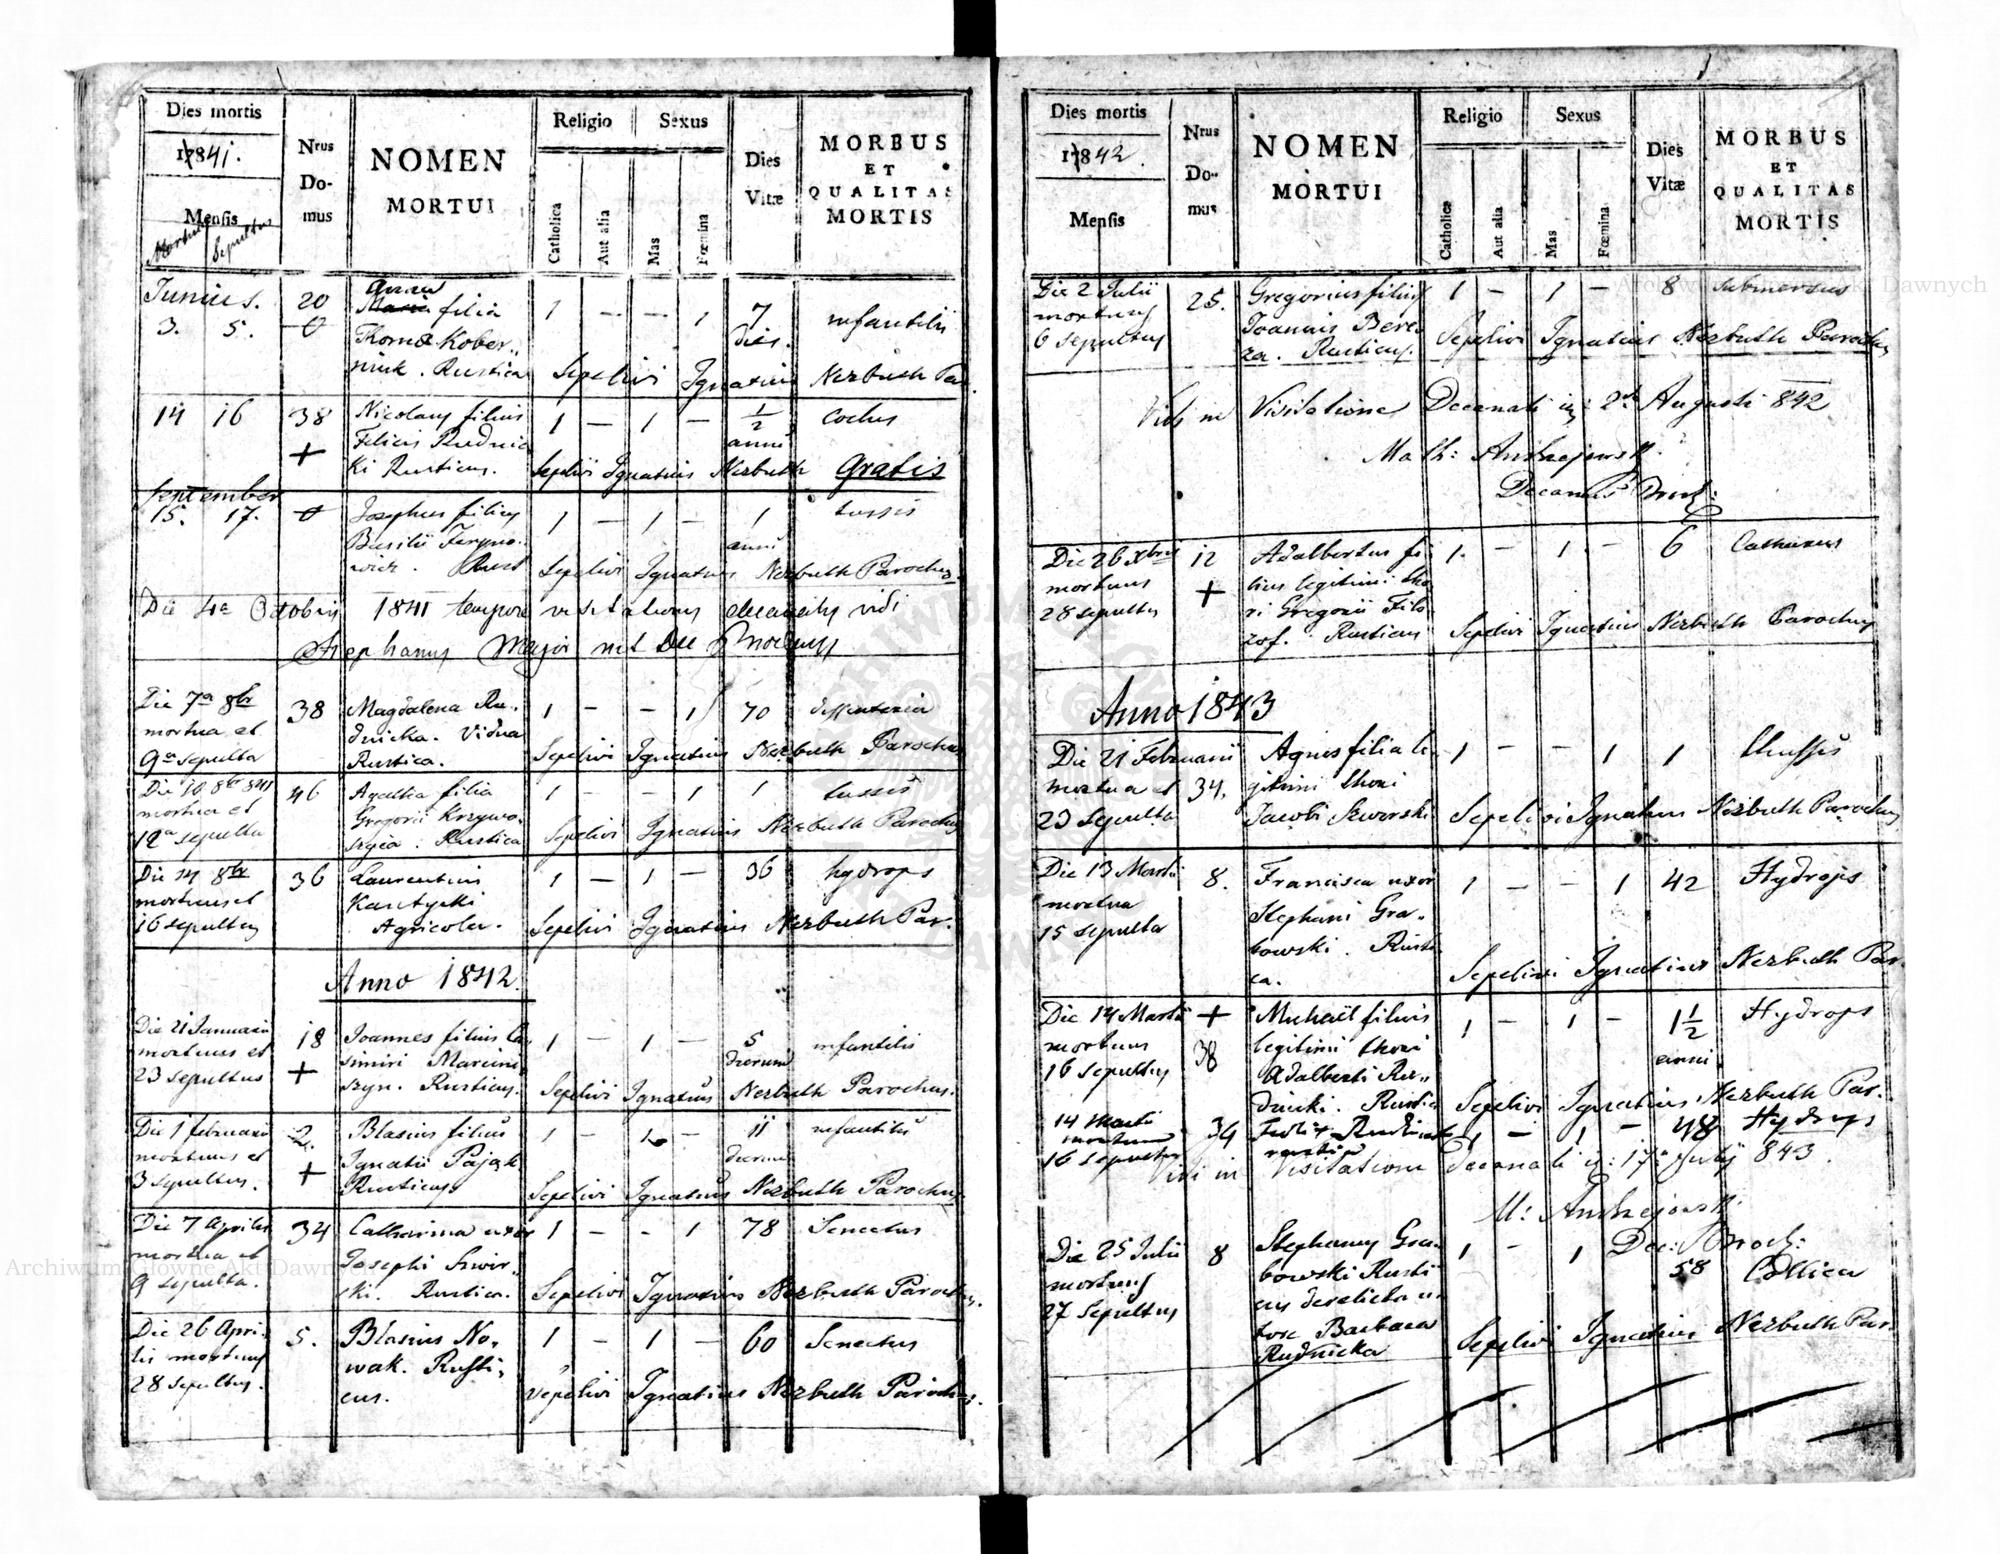 Dies mortis
1841.
Mensis
Mortui Sepultus
Nrus Do- mus
NOMEN
MORTUI
Religio Sexus
Catholica
Aut alia
Mas
Fœmina
Dies
Vitæ
MORBUS
ET
QUALITAS
MORTIS
Junius.
3. 5.
20
Anna
filia
Thomæ Kober„
niuk. Rustica
1 — — 1
7
dies.
infantilis
Sepelivi Ignatius Nezbuth Par.
14 16
38
+
Nicolaus filius
Felicis Rudnic
ki Rusticus.
1 — 1 —
1/2
anni
Sepelivi Ignatius Nezbuth Gratis
September
15. 17.
Josephus filius
Basilii
Rust
1 — 1 —
1
anni
tussis
Sepelivi Ignatius Nezbuth Parochus.
Die 4a Octobris 1841 tempore visitationis decanalis vidi
Stephanus Major
Die 7a 8br
mortua et
9a sepulta
38
Magdalena Ru„
dnicka. Vidua
Rustica.
1 — — 1
70
dissenteria
Sepelivi Ignatius Nezbuth Parochus
Die 10 8br 841
mortua et
12a sepulta
46
Agatha filia
Gregorii Krzywo„
szyia. Rustica
1 — — 1
1
tussis
Sepelivi Ignatius Nezbuth Parochus
Die 14 8br
mortuus et
16 sepultus
36
Laurentius
Agricola.
1 — 1 —
36
hydrops
Sepelivi Ignatius Nezbuth Par.
Anno 1842.
Die 21 Januarii
mortuus et
23 sepultus
18
+
Joannes filius Ca
simiri Marcini
szyn. Rusticus.
1 — 1 —
5
dierum
infantilis
Sepelivi Ignatius Nezbuth Parochus.
Die 1 februarii
mortuus et
3 sepultus.
2.
+
Blasius filius
Ignatii Pająk
Rusticus
1 — 1 —
11
dierum
infantilis
Sepelivi Ignatius Nezbuth Parochus
Die 7 Aprilis
mortua et
9 sepulta.
34
Catharina uxor
Josephi Siwir„
ski. Rustica.
1 — - 1
78
Senectus
Sepelivi Ignatius Nezbuth Parochus.
Die 26 Apri„
lis mortuus
28 sepultus.
5.
Blasius No„
wak. Rusti„
cus.
1 — 1 —
60
Senectus
Sepelivi Ignatius Nezbuth Parochus.
Dies mortis
1842.
Mensis
Nrus Do- mus
NOMEN
MORTUI
Religio Sexus
Catholica
Aut alia
Mas
Fœmina
Dies
Vitæ
MORBUS
ET
QUALITAS
MORTIS
Die 2 Julii
mortuus
6 sepultus
25.
Gregorius filius
Joannis Bere„
za. Rusticus.
1 — 1 —
8
submersus
Sepelivi Ignatius Nezbuth Parochus
Vidi in Visitatione Decanali 2 Augusti 842
Math: Andrzejowski
Decanus
Die 26 Xbris
mortuus
28 sepultus
12
+
Adalbertus fi„
lius legitimi tho
ri Gregorii Filo„
zof. Rusticus
1. — 1. —
6
Sepelivi Ignatius Nezbuth Parochus
Anno 1843
Die 21 Februarii
mortua et
23 Sepulta
34.
Agnes filia le„
gitimi thori
Jacobi Siworski
1 — — 1
1
thussis
Sepelivi Ignatius Nezbuth Parochus
Die 13 Martii
mortua
15 sepulta
8.
Francisca uxor
Stephani Gra„
bowski. Rusti
ca.
1 — — 1
42
Hydrops
Sepelivi Ignatius Nezbuth Par.
Die 14 Martii
mortuus
16 sepultus
+
38
Michaël filius
legitimi thori
Adalberti Ru„
dnicki. Rustic
1 — 1 —
1 1/2
anni
Hydrops
Sepelivi Ignatius Nezbuth Par.
14 Martii
mortuus
16 sepultus
34
1 — 1 —
48
Hydrops
Vidi in Visitatione Decanali 17 Julij 843.
M: Andrzejowski
Die 25 Julii
mortuus
27 Sepultus
8
Stephanus Gra„
bowski Rusti
cus derelicta u„
xore Barbara
Rudnicka
1 — 1
58
Collica
Sepelivi Ignatius Nezbuth Par.
Archiwum Główne Akt Dawnych
Archiwum Główne Akt Dawnych